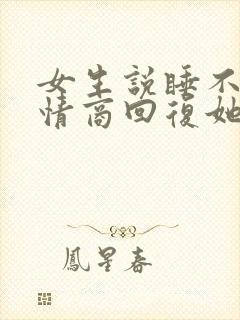 女生説睡不
情商回復她
鳳星春